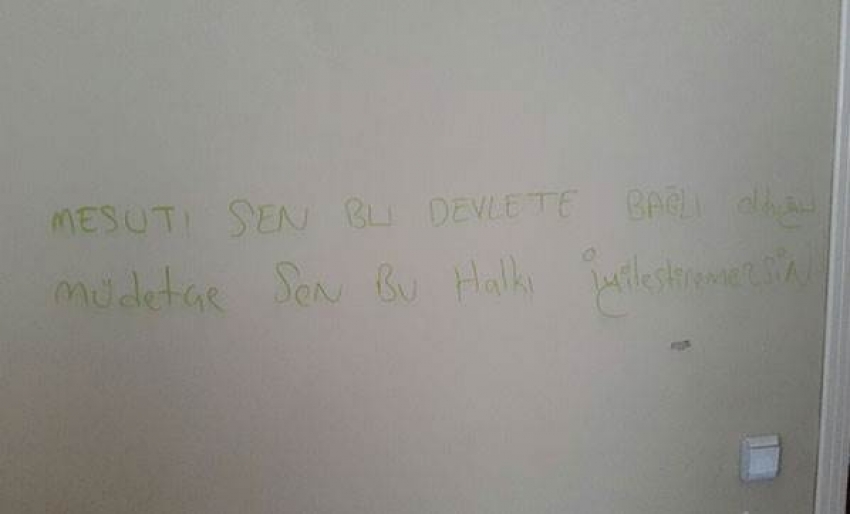 MESUT! SEN BU DEVLETE BAĞLI olduğu
müdetçe SEN BU Halkı iyileştiremezsİN